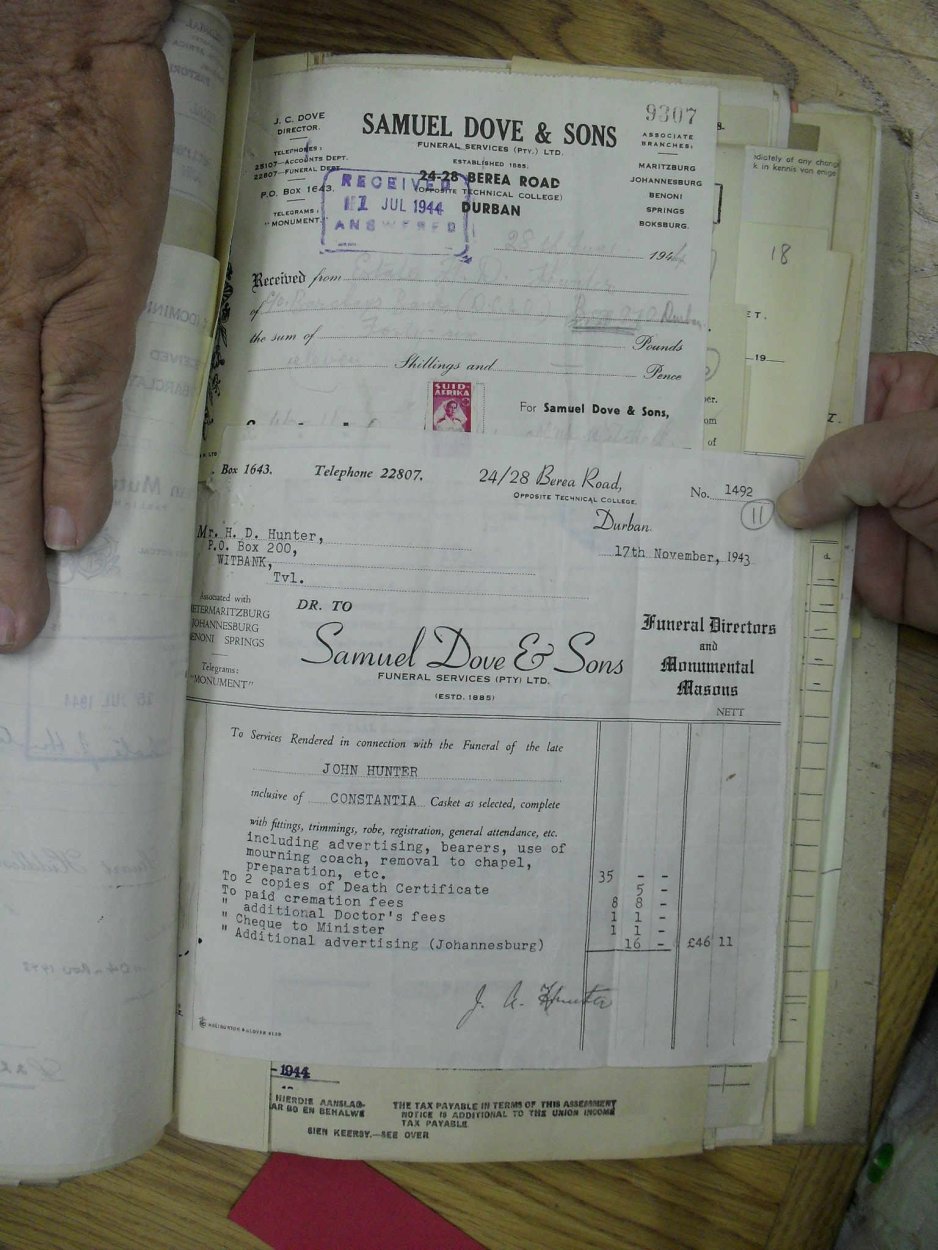 J. C. DOVE
DIRECTOR.
TELEPHONES:
25107—ACCOUNTS DEPT.
22807—FUNERAL DEPT.
P.O. BOX 1643.
TELEGRAMS:
"MONUMENT."
SAMUEL DOVE & SONS
FUNERAL SERVICES (PTY.) LTD.
ESTABLISHED 1885.
24-28 BEREA ROAD
(OPPOSITE TECHNICAL COLLEGE)
DURBAN
9307
ASSOCIATE
BRANCHES:
MARITZBURG
JOHANNESBURG
BENONI
SPRINGS
BOKSBURG.
RECEIVED
JUL 1944
ANSWERED
28th June 1944
Received from Estate H. D. Hunter
of c/o Barclays Bank (D.C.&O.) Durban
the sum of Pounds
eleven Shillings and Pence
SUID-
AFRIKA
For Samuel Dove & Sons,
Box 1643. Telephone 22807.
24/28 Berea Road,
OPPOSITE TECHNICAL COLLEGE.
Durban.
No. 1492
11
17th November, 1943
Mr. H. D. Hunter,
P.O. Box 200,
WITBANK,
Tvl.
Associated with
IETERMARITZBURG
JOHANNESBURG
ENONI SPRINGS
Telegrams:
"MONUMENT"
DR. TO
Samuel Dove & Sons
FUNERAL SERVICES (PTY) LTD.
(ESTD. 1885)
Funeral Directors
and
Monumental
Masons
NETT
To Services Rendered in connection with the Funeral of the late
JOHN HUNTER
inclusive of CONSTANTIA Casket as selected, complete
with fittings, trimmings, robe, registration, general attendance, etc.
including advertising, bearers, use of
mourning coach, removal to chapel,
preparation, etc. 35 - -
To 2 copies of Death Certificate 5 -
To paid cremation fees 8 8 -
" additional Doctor's fees 1 1 -
" Cheque to Minister 1 1 -
" Additional advertising (Johannesburg) 16 - £46 11
J. A. Hunter
-1944
HIERDIE AANSLAG-
AR BO EN BEHALWE
THE TAX PAYABLE IN TERMS OF THIS ASSESSMENT
NOTICE IS ADDITIONAL TO THE UNION INCOME
TAX PAYABLE
SIEN KEERSY.—SEE OVER
diately of any change
k in kennis van enige
18
ET.
19
om
of